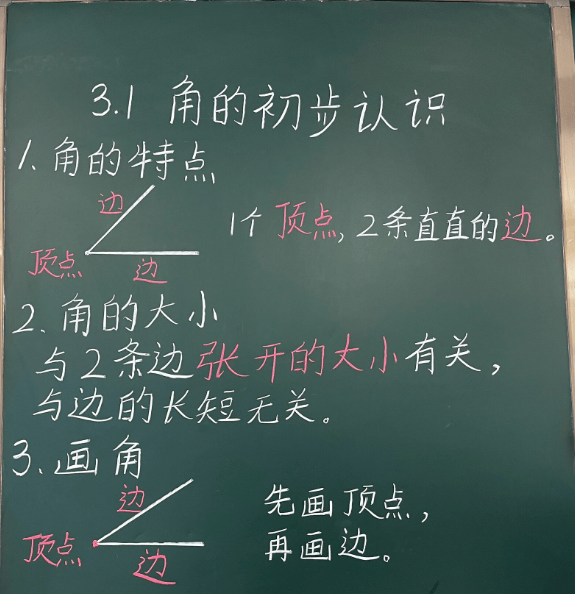 3.1 角的初步认识
1、角的特点
边
顶点
边
1个顶点，2条直直的边。
2、角的大小
与2条边张开的大小有关，
与边的长短无关。
3、画角
边
顶点
边
先画顶点，
再画边。